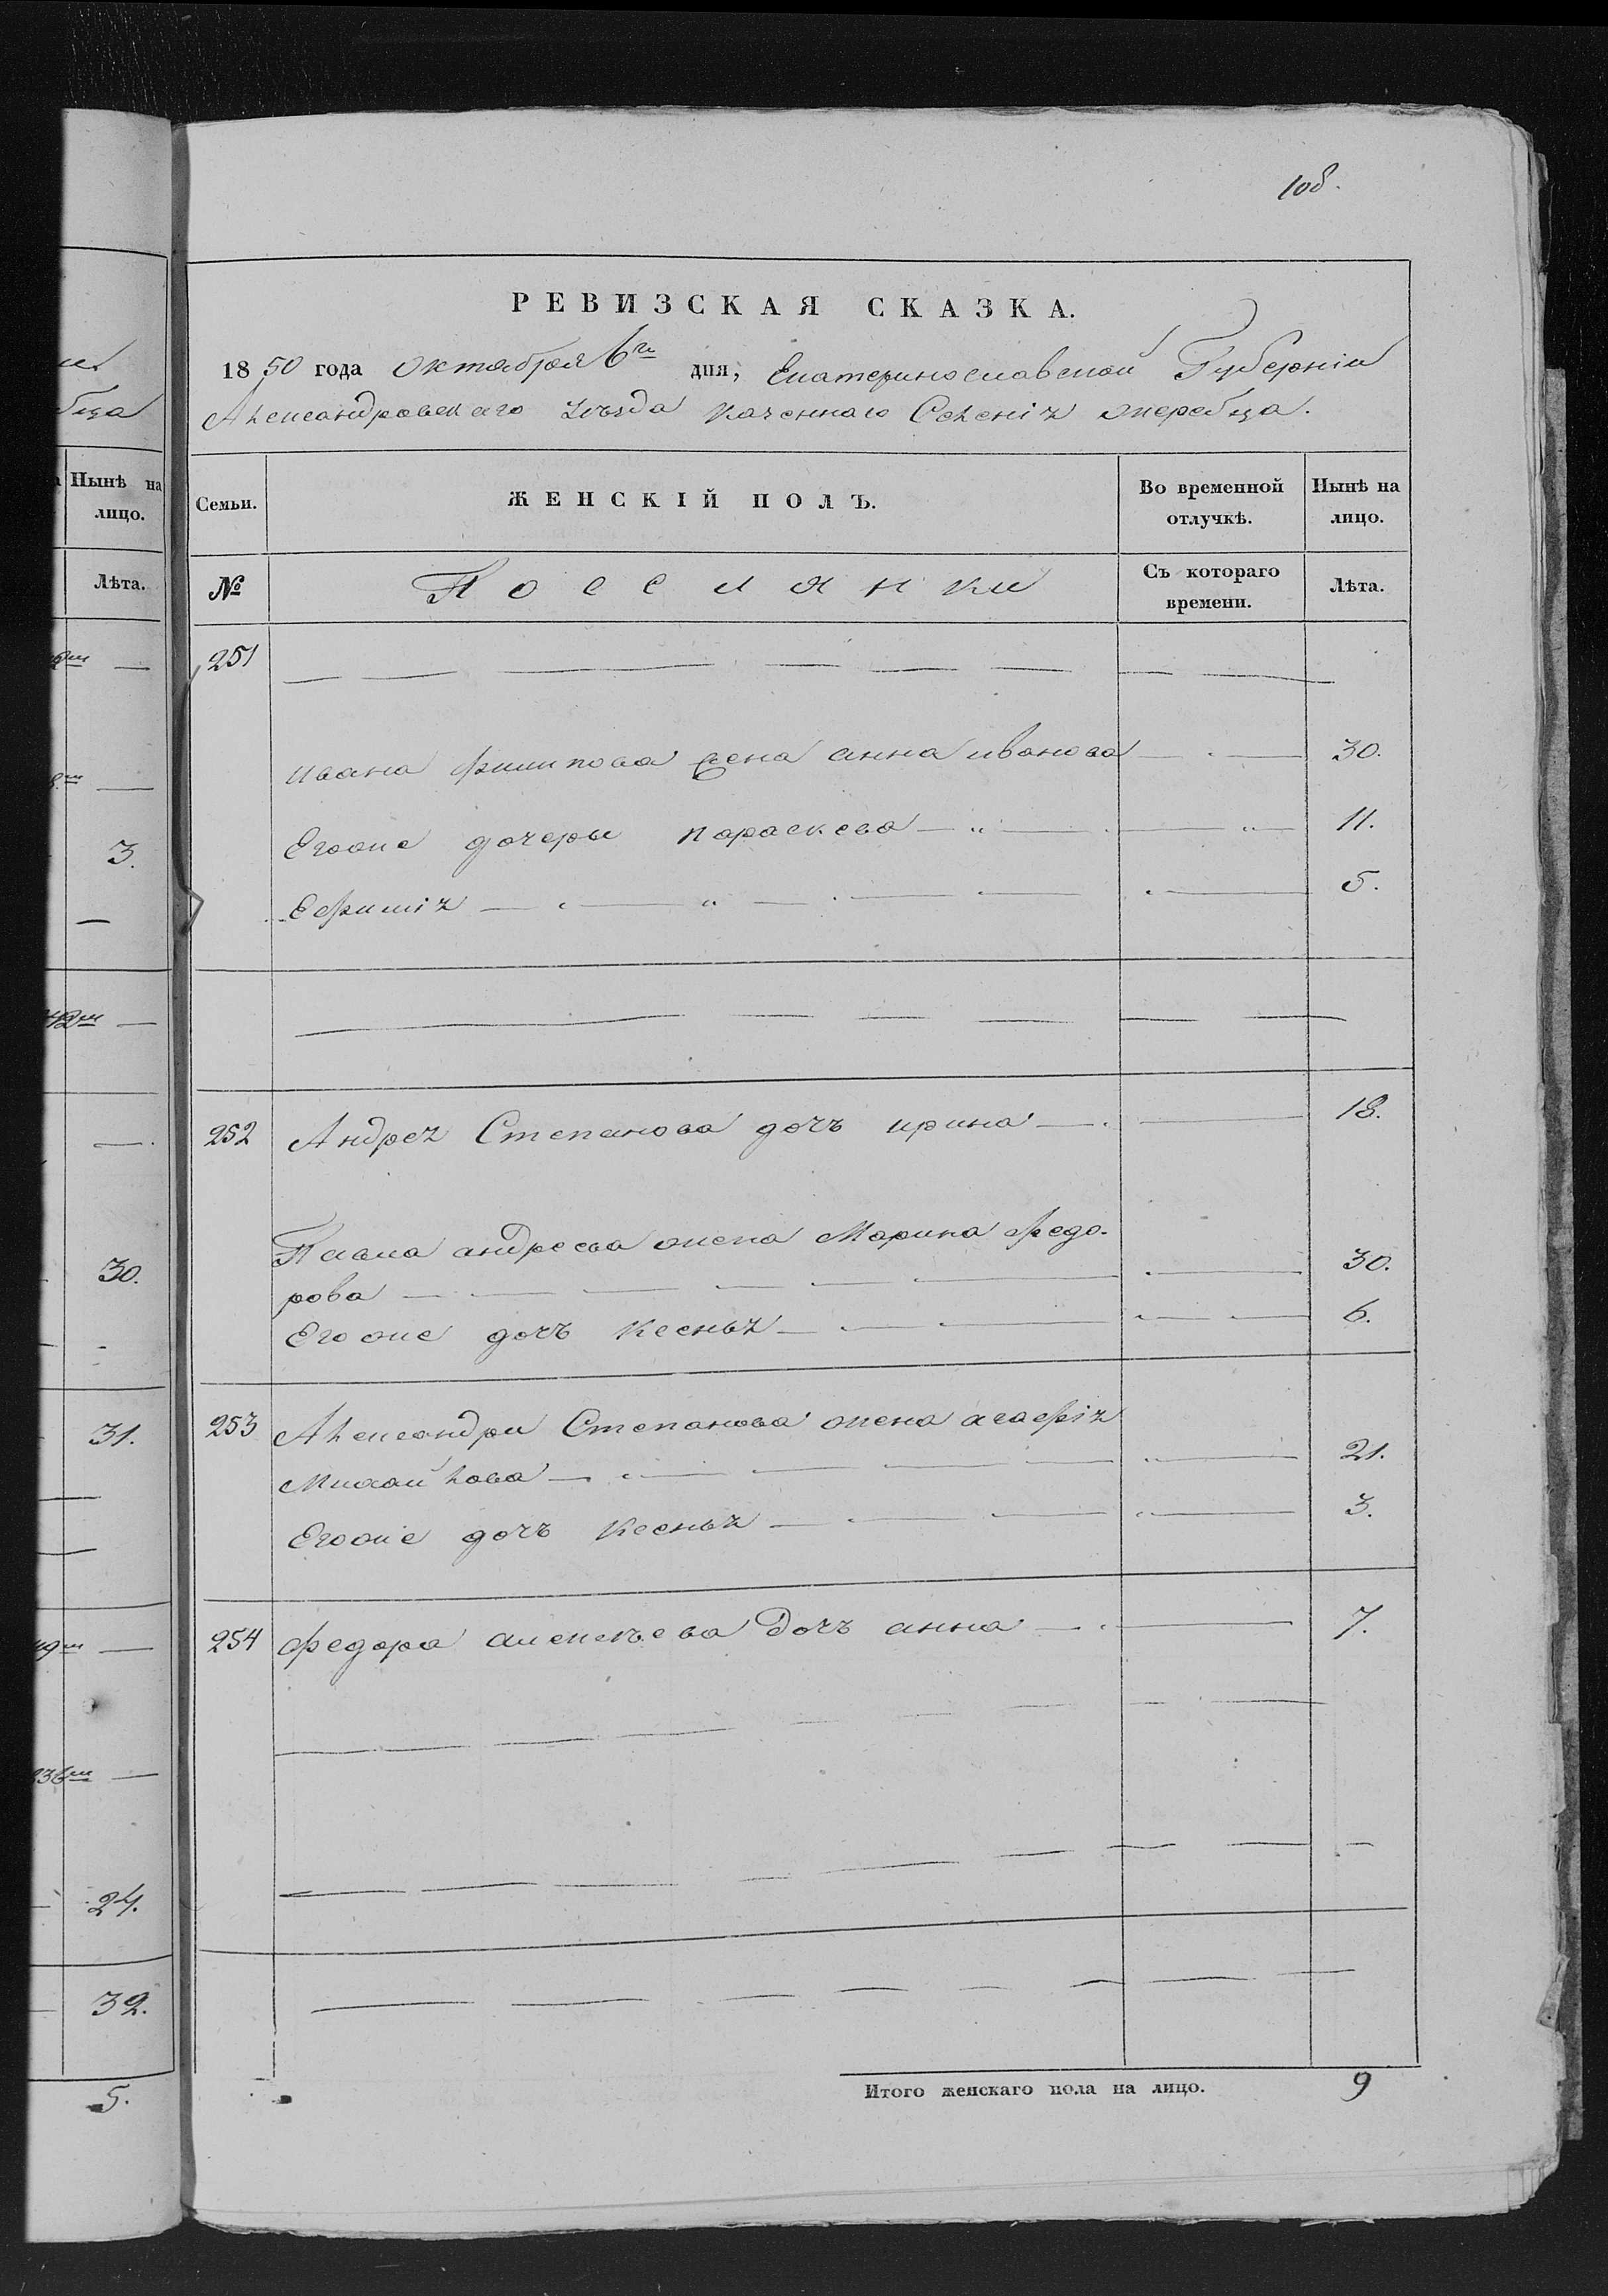 108.
РЕВИЗСКАЯ СКАЗКА.
1850 года октября 6го дня, Екатеринославской Губерніи
Александровскаго уѣзда казеннаго Селенія жеребца.
Семьи. ЖЕНСКІЙ ПОЛЪ. Во временной отлучкѣ. Нынѣ на лицо.
№ Поселянки Съ котораго времени. Лѣта.
251
ивана филипова жена анна иванова 30.
Егоже дочеры параскева 11.
Ефимія 5.
252 Андрея Степанова дочъ ирина 18.
Павла андреева жена Марина федо-
рова 30.
Егоже дочъ Ксенья 6.
253 Александра Степанова жена агафія
Михайлова 21.
Егоже дочъ Ксенья 3.
254 федора алексѣева дочъ анна 7.
Итого женскаго пола на лицо. 9
бца
Нынѣ на
лицо.
Лѣта.
3.
30.
31.
24.
32.
5.